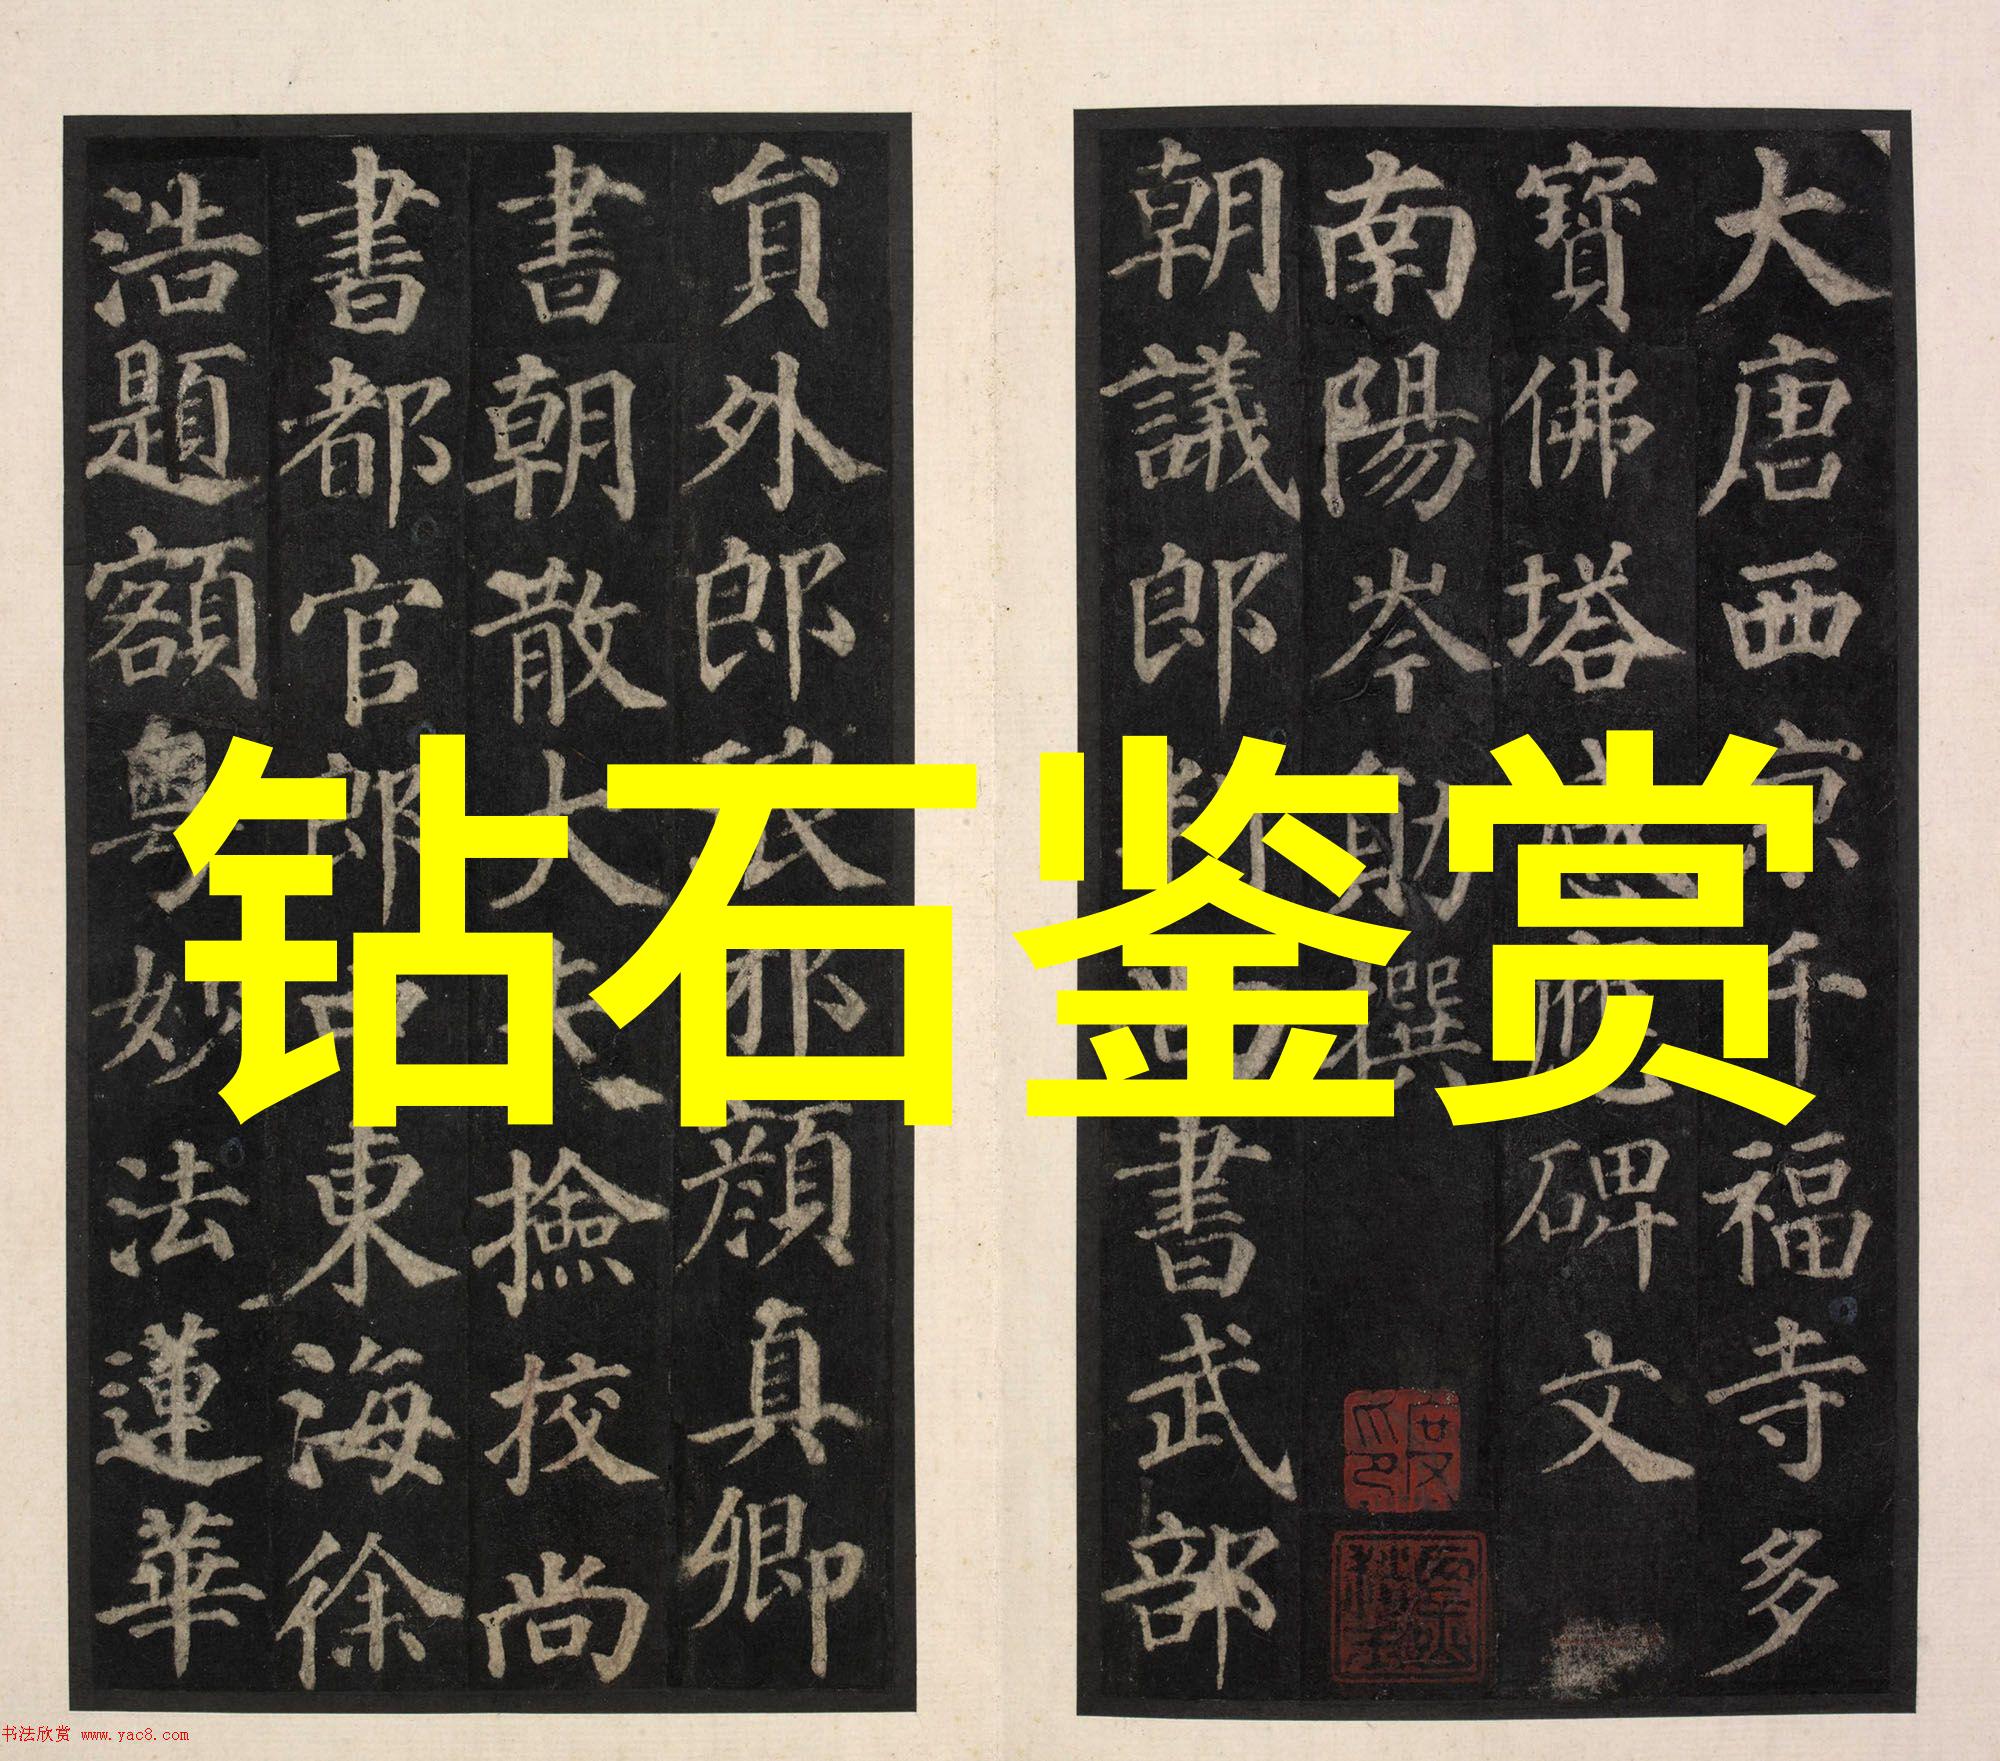 大唐西京千福寺多
寶佛塔感應碑文
南陽岑勛撰
朝議郎判尚書武部
貟外郎琅邪顏真卿
書朝散大夫撿挍尚
書都官郎中東海徐
浩題額粵妙法蓮華
钻石鉴赏
书法欣赏 www.yac8.com